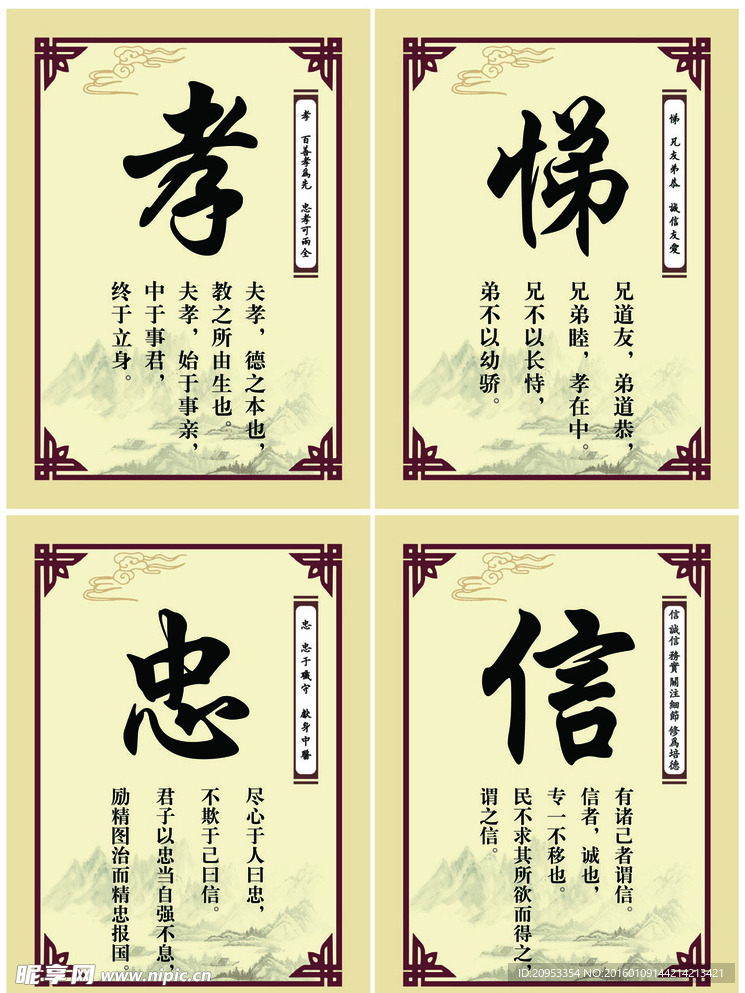 孝
孝 百善孝為先 忠孝可兩全
夫孝，德之本也，
教之所由生也。
夫孝，始于事亲，
中于事君，
终于立身。
悌
悌 兄友弟恭 誠信友愛
兄道友，弟道恭，
兄弟睦，孝在中。
兄不以长恃，
弟不以幼骄。
忠
忠 忠于職守 獻身中醫
尽心于人曰忠，
不欺于己曰信。
君子以忠当自强不息，
励精图治而精忠报国。
信
信 誠信 務實 關注細節 修為培德
有诸己者谓信。
信者，诚也，
专一不移也。
民不求其所欲而得之，
谓之信。
昵享网 www.nipic.cn
ID:20953354 NO:20160109144214213421